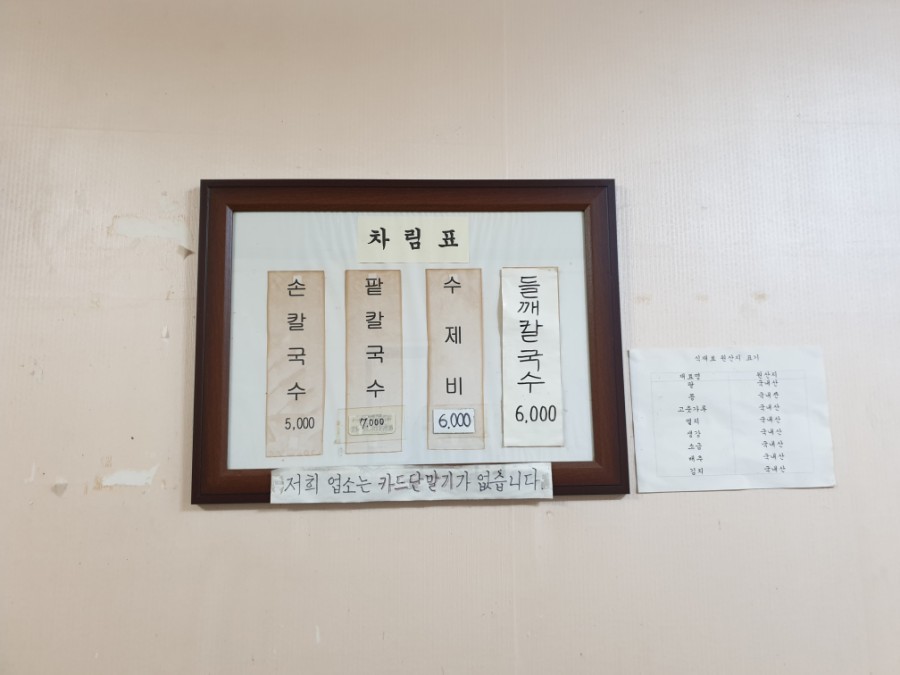 차림표
손칼국수
5,000
팥칼국수
7,000
수제비
6,000
들깨칼국수
6,000
저희 업소는 카드단말기가 없습니다.
식재료 원산지 표기
재료명 원산지
팥 국내산
콩 국내산
고춧가루 국내산
멸치 국내산
생강 국내산
소금 국내산
배추 국내산
김치 국내산